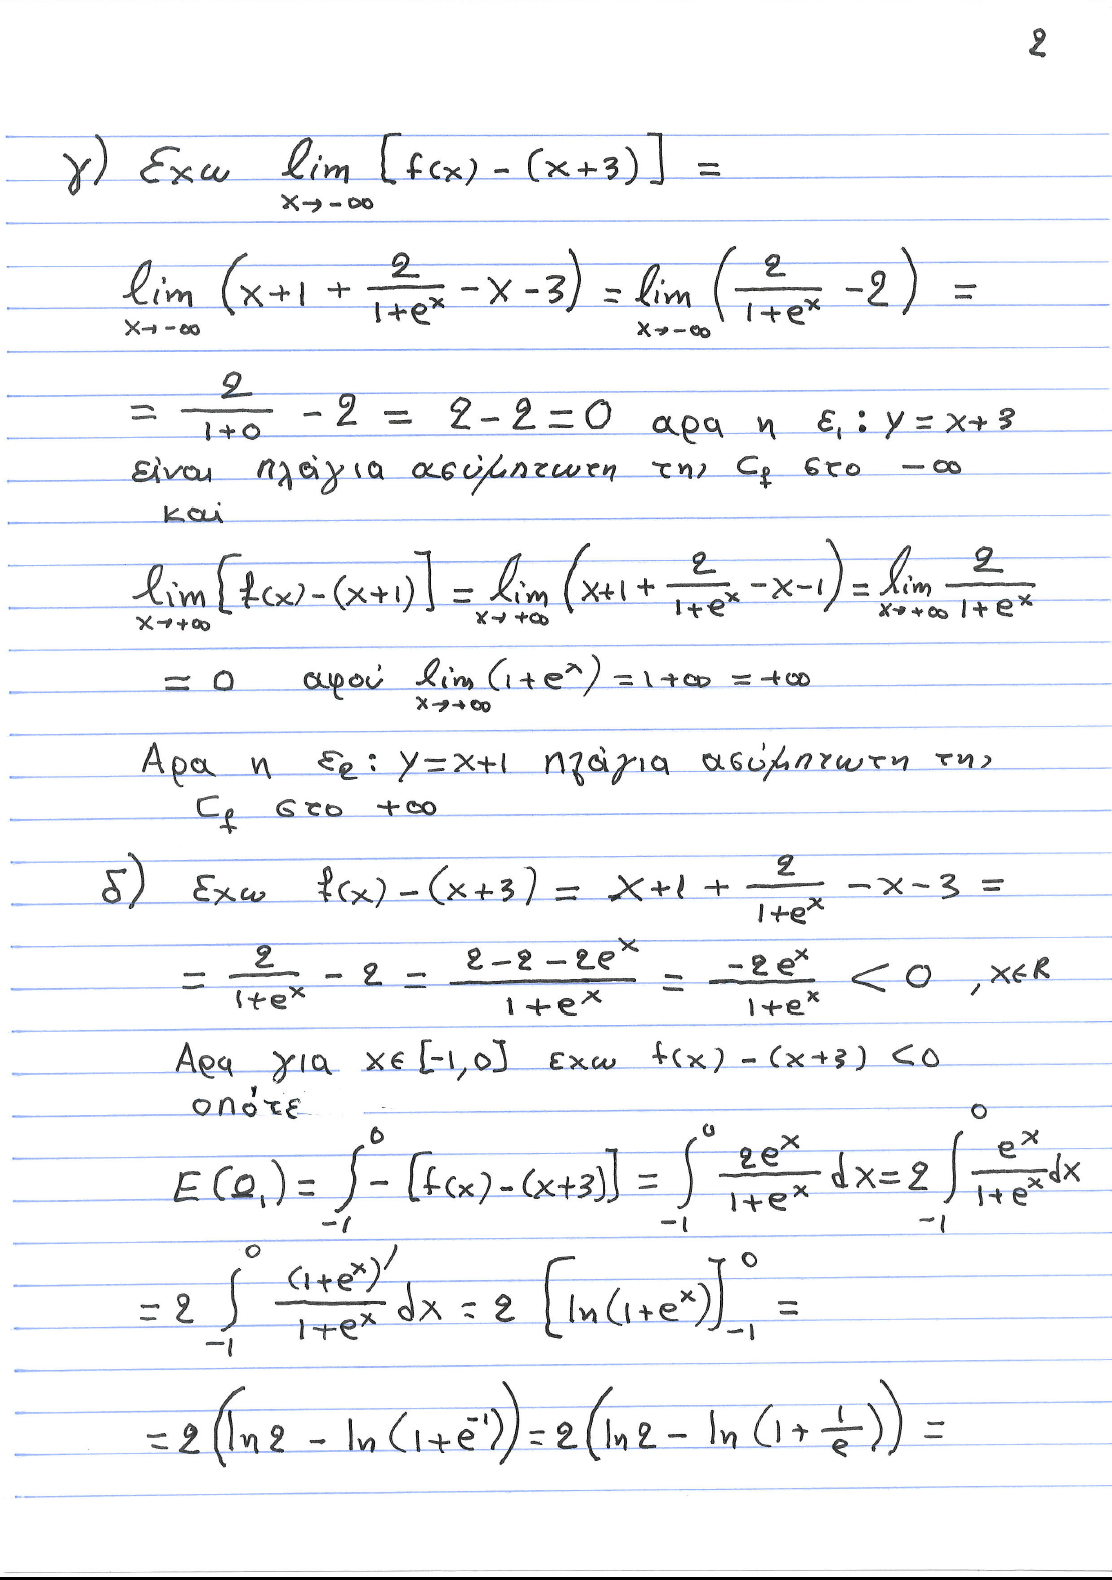 2
γ) Εχω lim x→-∞ [f(x) - (x+3)] =
lim x→-∞ (x+1 + 2/(1+e^x) - x - 3) = lim x→-∞ (2/(1+e^x) - 2) =
= 2/(1+0) - 2 = 2 - 2 = 0 αρα η ε₁ : y = x+3
είναι πλάγια ασύμπτωτη της C_f στο -∞
και
lim x→+∞ [f(x) - (x+1)] = lim x→+∞ (x+1 + 2/(1+e^x) - x - 1) = lim x→+∞ 2/(1+e^x)
= 0 αφού lim x→+∞ (1+e^x) = 1+∞ = +∞
Αρα η ε₂ : y = x+1 πλάγια ασύμπτωτη της
C_f στο +∞
δ) Εχω f(x) - (x+3) = x+1 + 2/(1+e^x) - x - 3 =
= 2/(1+e^x) - 2 = (2-2-2e^x)/(1+e^x) = -2e^x/(1+e^x) < 0 , x∈R
Αρα για x∈[-1,0] εχω f(x) - (x+3) < 0
οπότε
E(Ω₁) = ∫_{-1}^{0} -[f(x) - (x+3)] = ∫_{-1}^{0} 2e^x/(1+e^x) dx = 2 ∫_{-1}^{0} e^x/(1+e^x) dx
= 2 ∫_{-1}^{0} (1+e^x)'/(1+e^x) dx = 2 [ln(1+e^x)]_{-1}^{0} =
= 2 (ln2 - ln(1+e^{-1})) = 2 (ln2 - ln(1+1/e)) =